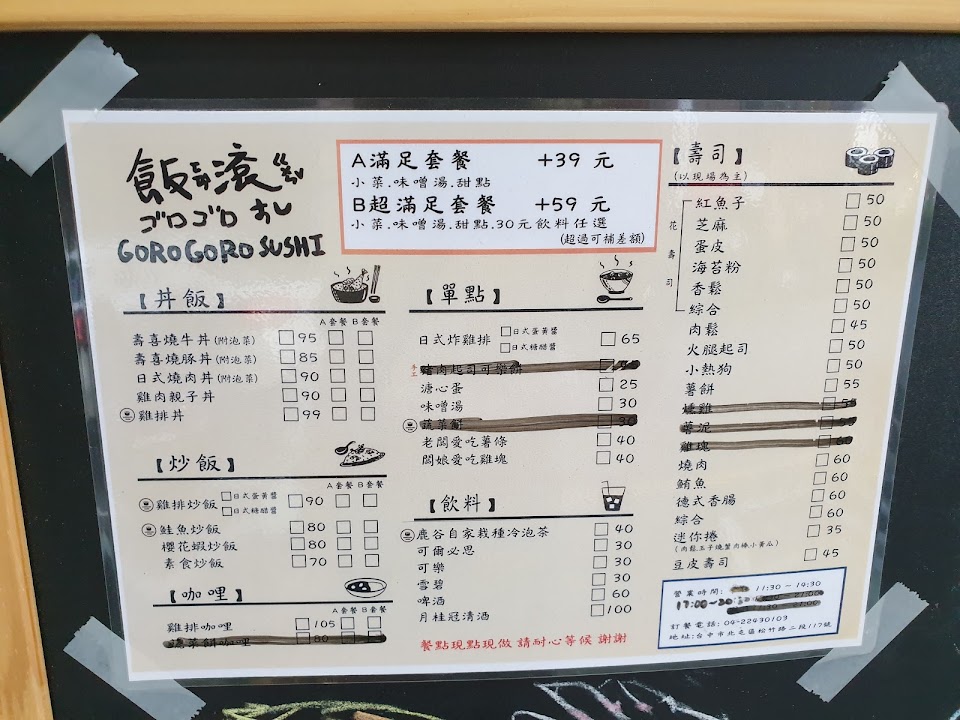 飯滾
ゴロゴロ すし
GOROGORO SUSHI
A滿足套餐 +39 元
小菜.味噌湯.甜點
B超滿足套餐 +59 元
小菜.味噌湯.甜點.30元飲料任選
(超過可補差額)
【丼飯】
A套餐 B套餐
壽喜燒牛丼(附泡菜) 95
壽喜燒豚丼(附泡菜) 85
日式燒肉丼(附泡菜) 90
雞肉親子丼 90
雞排丼 99
【炒飯】
A套餐 B套餐
雞排炒飯 日式蛋黃醬 日式糖醋醬 90
鮭魚炒飯 80
櫻花蝦炒飯 80
素食炒飯 70
【咖哩】
A套餐 B套餐
雞排咖哩 105
蔬菜餅咖哩 80
【單點】
日式炸雞排 日式蛋黃醬 日式糖醋醬 65
手工 豬肉起司可樂餅
溏心蛋 25
味噌湯 30
蔬菜餅 30
老闆愛吃薯條 40
闆娘愛吃雞塊 40
【飲料】
鹿谷自家栽種冷泡茶 40
可爾必思 30
可樂 30
雪碧 30
啤酒 60
月桂冠清酒 100
餐點現點現做 請耐心等候 謝謝
【壽司】
(以現場為主)
花壽司
紅魚子 50
芝麻 50
蛋皮 50
海苔粉 50
香鬆 50
綜合 50
肉鬆 45
火腿起司 50
小熱狗 50
薯餅 55
燻雞 55
薯泥 50
雞塊 60
燒肉 60
鮪魚 60
德式香腸 60
綜合 60
迷你捲 35
(肉鬆.玉子燒.蟹肉棒.小黃瓜)
豆皮壽司 45
營業時間: 11:30 ~ 14:30
17:00~20:30
訂餐電話: 04-22430103
地址:台中市北屯區松竹路二段117號